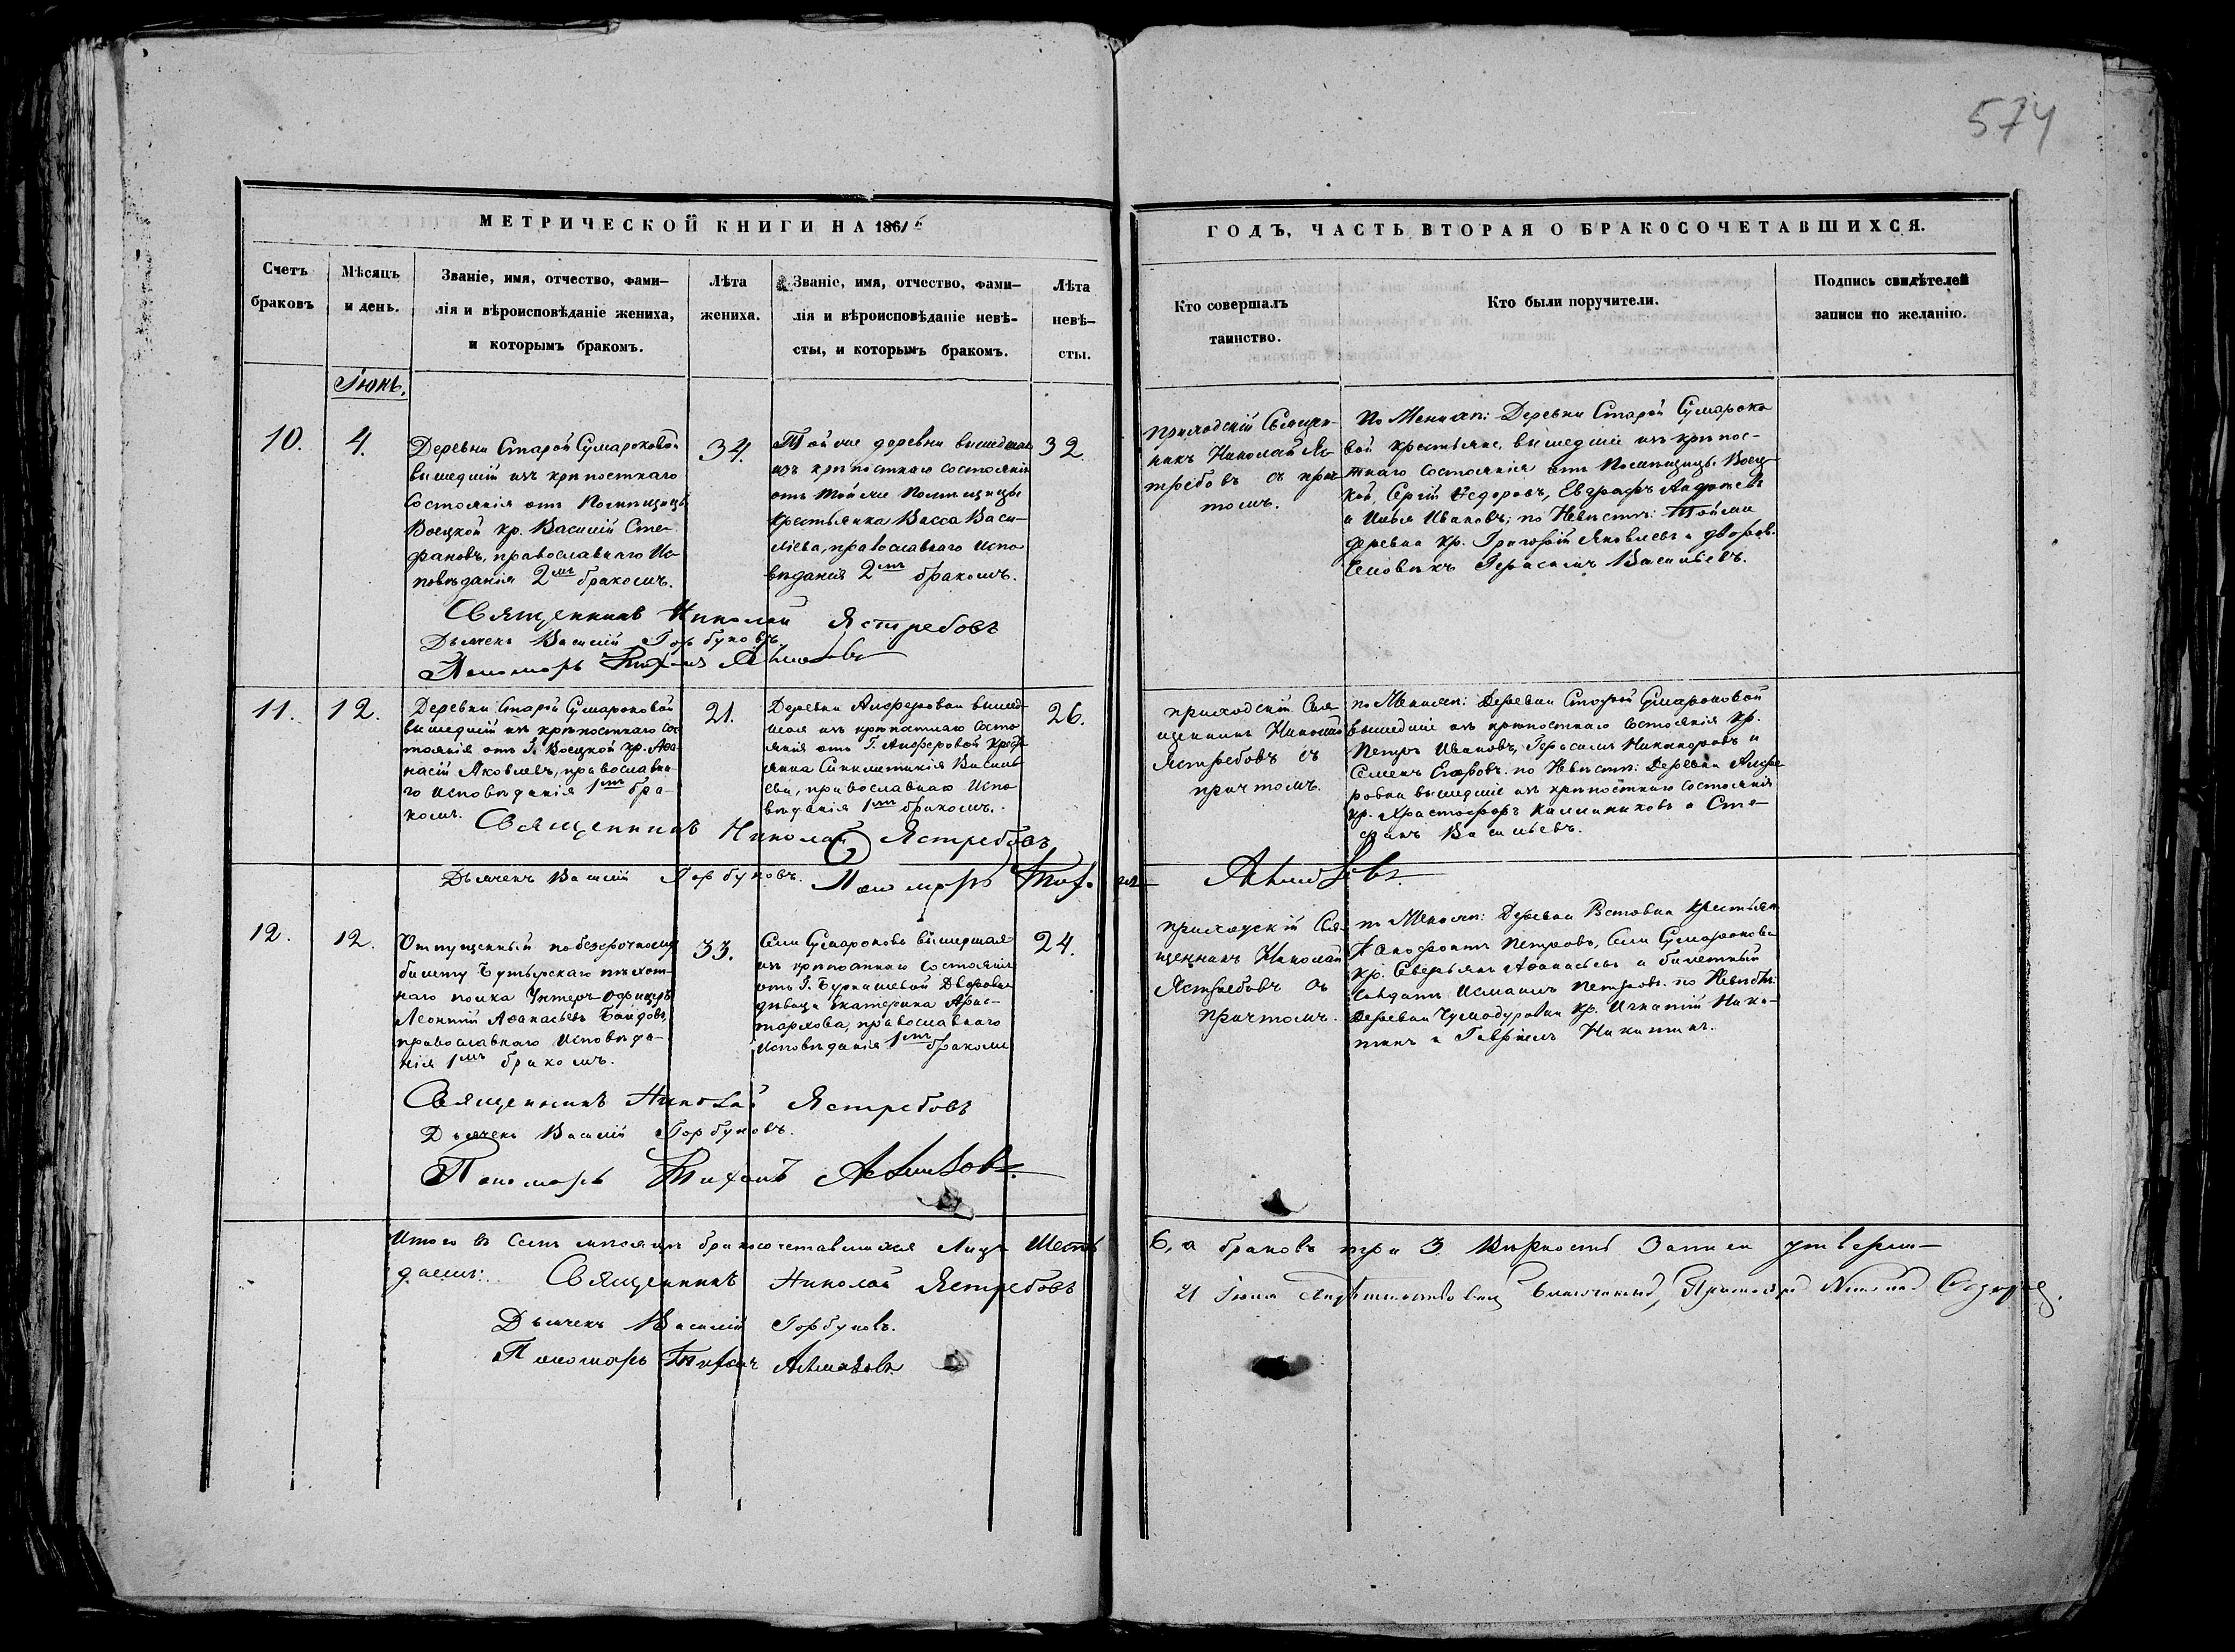 574
МЕТРИЧЕСКОЙ КНИГИ НА 1861 6
ГОДЪ, ЧАСТЬ ВТОРАЯ О БРАКОСОЧЕТАВШИХСЯ.
Счетъ
браковъ
Мѣсяцъ
и день.
Званіе, имя, отчество, фами-
лія и вѣроисповѣданіе жениха,
и которымъ бракомъ.
Лѣта
жениха.
Званіе, имя, отчество, фами-
лія и вѣроисповѣданіе невѣ-
сты, и которымъ бракомъ.
Лѣта
невѣ-
сты.
Кто совершалъ
таинство.
Кто были поручители.
Подпись свидѣтелей
записи по желанію.
Іюнь.
10.
4.
Деревни Старой Сумароковой
вышедшій изъ крѣпостнаго
состоянія отъ Помѣщицы
Воецкой кр. Василій Сте-
фановъ, православнаго Ис-
повѣданія 2мъ бракомъ.
34.
Той же деревни вышедшая
изъ крѣпостнаго состоянія
отъ той же Помѣщицы
крестьянка Васса Васи-
ліева, православнаго испо
вѣданія 2мъ бракомъ.
32.
приходскій Священ-
никъ Николай Яс-
требовъ съ прич-
томъ.
По Женихѣ: Деревни Старой Сумароко
вой крестьяне, вышедшіе изъ крѣпос-
тнаго состоянія отъ Помѣщицы Воец-
кой, Сергій Ѳедоровъ, Евграфъ
и Илья Ивановъ; по Невѣстѣ: Той же
деревни кр. Григорій Яковлевъ и дворов.
человѣкъ Герасимъ Васильевъ.
Священникъ Николай Ястребовъ
Дьячекъ Василій Горбуновъ
Пономарь Тихонъ
11.
12.
Деревни Старой Сумароковой
вышедшій изъ крѣпостнаго сос-
тоянія отъ Г. Воецкой кр. Аѳа-
насій Яковлевъ, православна-
го исповѣданія 1мъ бра-
комъ.
21.
Деревни Алферовки вышед-
шая изъ крѣпостнаго состо
янія отъ Г. Алферовой кресть
янка Синклитикія Василь
ева, православнаго Испо
вѣданія 1мъ бракомъ.
26.
приходскій Свя-
щенникъ Николай
Ястребовъ съ
причтомъ.
по Женихѣ: Деревни Старой Сумароковой
вышедшіе изъ крѣпостнаго состоянія кр.
Петръ Ивановъ, Герасимъ Никаноровъ и
Семенъ Егоровъ. по Невѣстѣ: Деревни Алфе
ровки вышедшіе изъ крѣпостнаго состоянія
кр. Христофоръ Каллиниковъ и Сте-
фанъ Васильевъ.
Священникъ Николай Ястребовъ
Дьячекъ Василій Горбуновъ. Пономарь Тихонъ
12.
12.
Отпущенный по безсрочному
билету Бутырскаго пѣхот-
наго полка Унтеръ-офицеръ
Леонтій Аѳанасьевъ
православнаго Исповѣда-
нія 1мъ бракомъ.
33.
Села Сумарокова вышедшая
изъ крѣпостнаго состоянія
отъ Г. Бурнашевой Дворовая
дѣвица Екатерина Арис-
тархова, православнаго
исповѣданія 1мъ бракомъ
24.
приходскій Свя-
щенникъ Николай
Ястребовъ съ
Причтомъ.
по Женихѣ: Деревни Вставки крестьян
Ксенофонтъ Петровъ, Села Сумарокова
кр. Северьянъ Аѳанасьевъ и билетный
солдатъ Измаилъ Петровъ. по Невѣстѣ:
Деревни Чумодуровки кр. Игнатій Ники-
тинъ и Гавріилъ Никитинъ.
Священникъ Николай Ястребовъ
Дьячекъ Василій Горбуновъ.
Пономарь Тихонъ
Итого въ семъ мѣсяцѣ бракосочетавшихся Лицъ Шесть 6, а браковъ три 3. Вѣрность Записи утверж-
даемъ: Священникъ Николай Ястребовъ
Дьячекъ Василій Горбуновъ.
Пономарь Тихонъ
21 Іюня